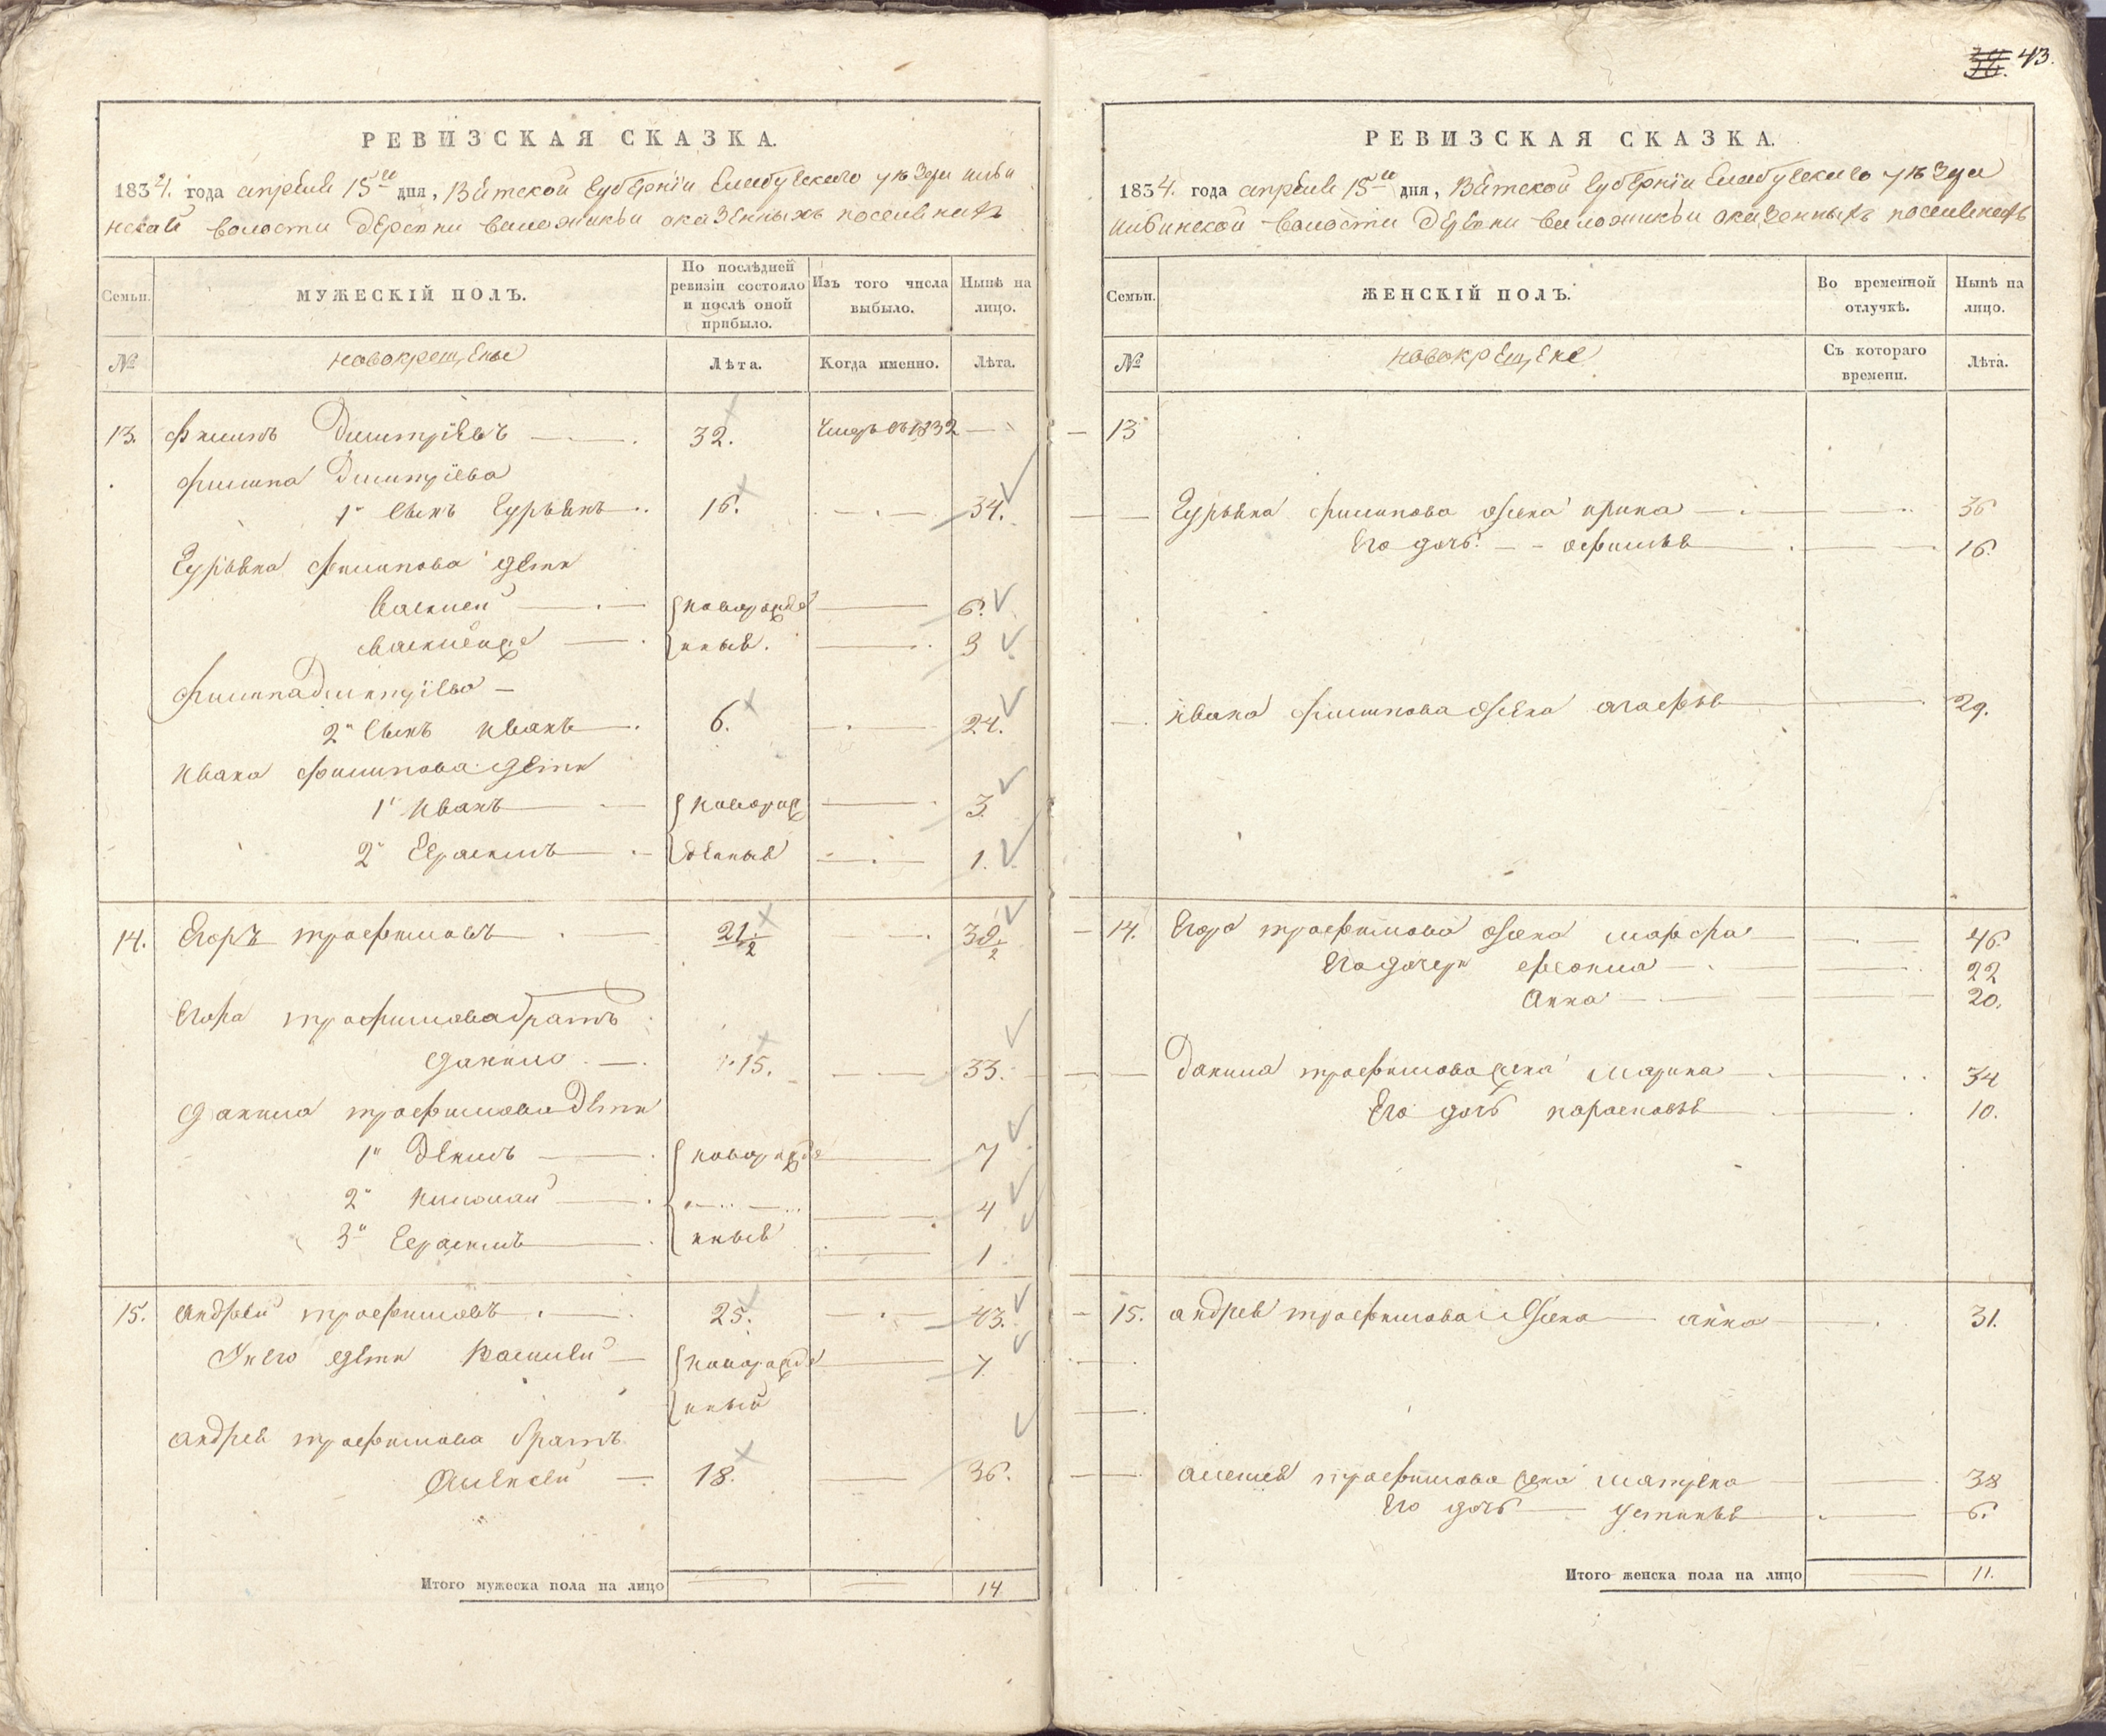 43.
РЕВИЗСКАЯ СКАЗКА.
1834. года апреля 15го дня, Вятской губернии Елабужского уезда
волости деревни о казенных поселянах
Семьи.
МУЖЕСКІЙ ПОЛЪ.
По послѣдней ревизіи состояло и послѣ оной прибыло.
Изъ того числа выбыло.
Нынѣ на лицо.
№
новокрещены
Лѣта.
Когда именно.
Лѣта.
13. Филипъ Дмитріевъ 32. 1832
Филипа Дмитріева
1й сынъ Гурьянъ 16. 34.
Гурьяна Филипова дети
Василей новорожде 6.
нные. 3
Филипа Дмитріева
2й сынъ Иванъ 6. 24.
Ивана Филипова дети
1й Иванъ новорож 3.
2й Герасимъ денные 1.
14. Егоръ Трофимовъ 21 1/2 39 1/2
Егора Трофимова братъ
Данило 15. 33.
Данила Трофимова дети
1й новорожде 7
2й Николай 4
3й Герасимъ нные 1
15. Андрей Трофимовъ 25. 43.
У него дети Василей новорожде 7
нный
Андрея Трофимова братъ
Алексей 18. 36.
Итого мужеска пола на лицо 14
РЕВИЗСКАЯ СКАЗКА.
1834. года апреля 15го дня, Вятской губернии Елабужского уезда
волости деревни о казенных поселянах
Семьи.
ЖЕНСКІЙ ПОЛЪ.
Во временной отлучкѣ.
Нынѣ на лицо.
№
новокрещене
Съ котораго времени.
Лѣта.
13
Гурьяна Филипова жена Ирина 36
Его дочь Афимья 16.
Ивана Филипова жена Агафья 29.
14. Егора Трофимова жена Марфа 46.
Его дочери Феокла 22
Анна 20.
Данила Трофимова жена Марина 34
Его дочь Парасковья 10.
15. Андрея Трофимова жена Анна 31.
Алексея Трофимова жена Матрена 38
Его дочь Устинья 6.
Итого женска пола на лицо 11.